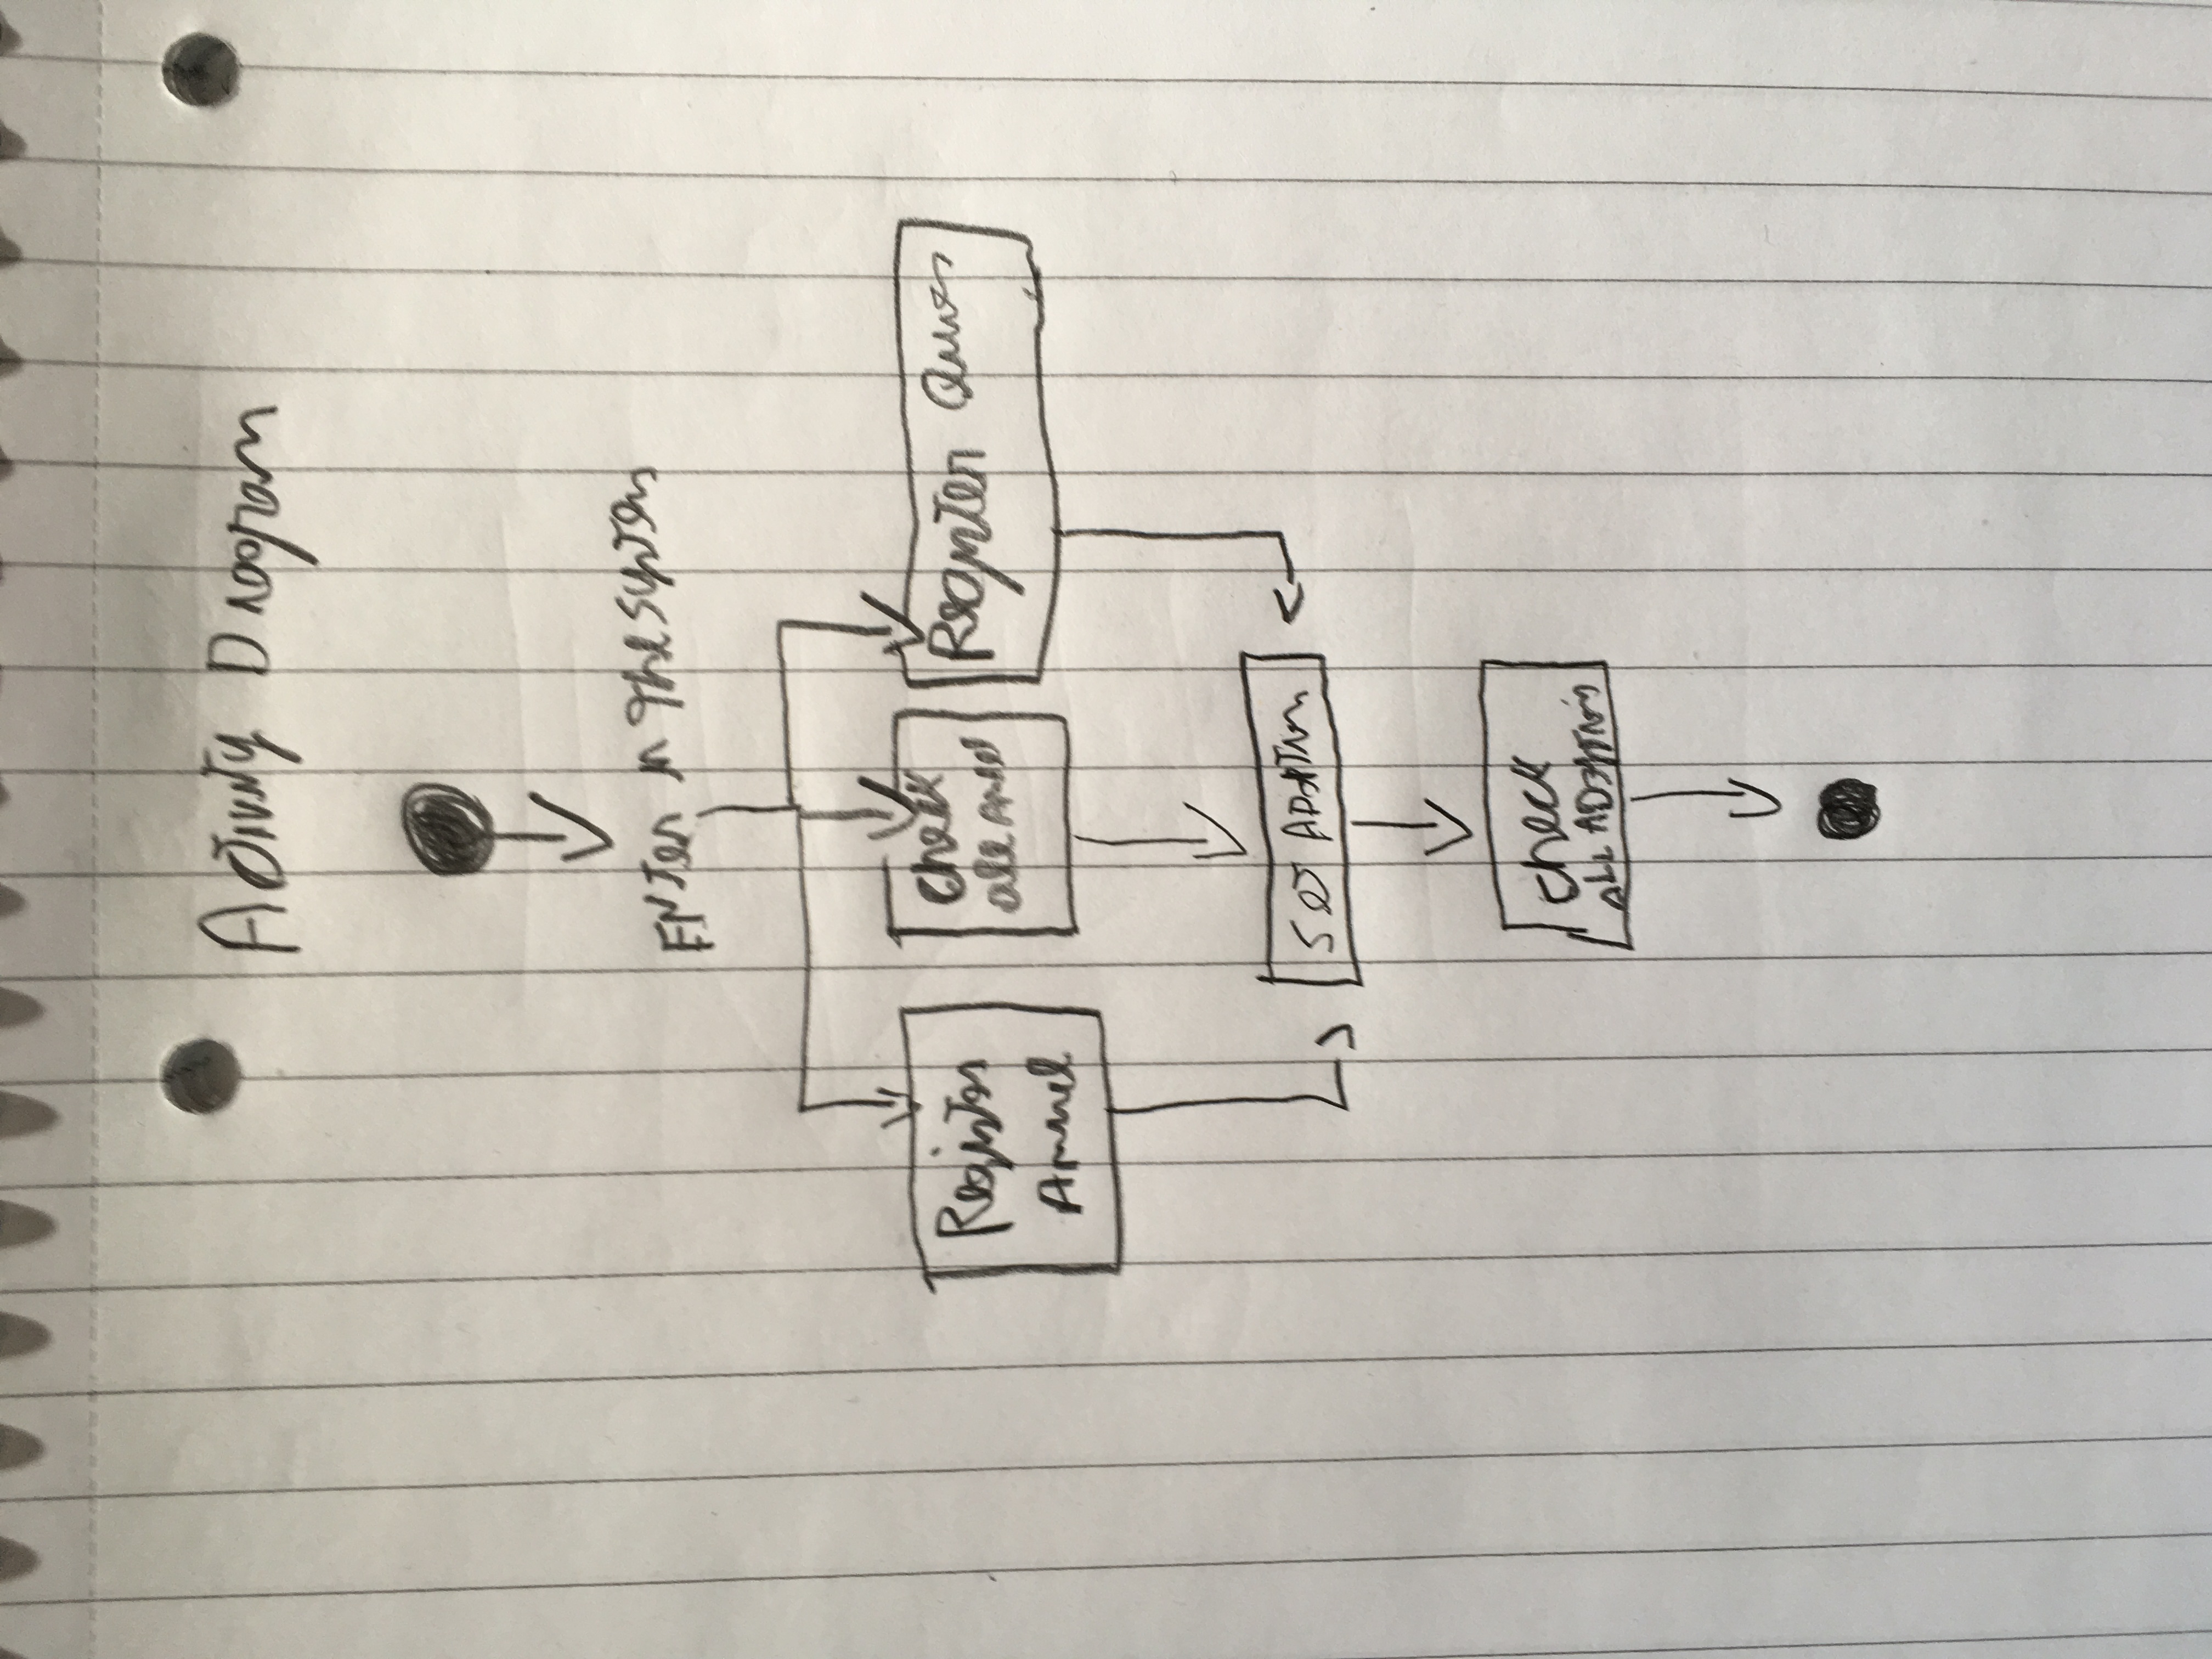 Activity Diagram
Enter in the system
Register
Animal
Check
all Animal
Register
Set Adoption
Check
ALL ADoptions